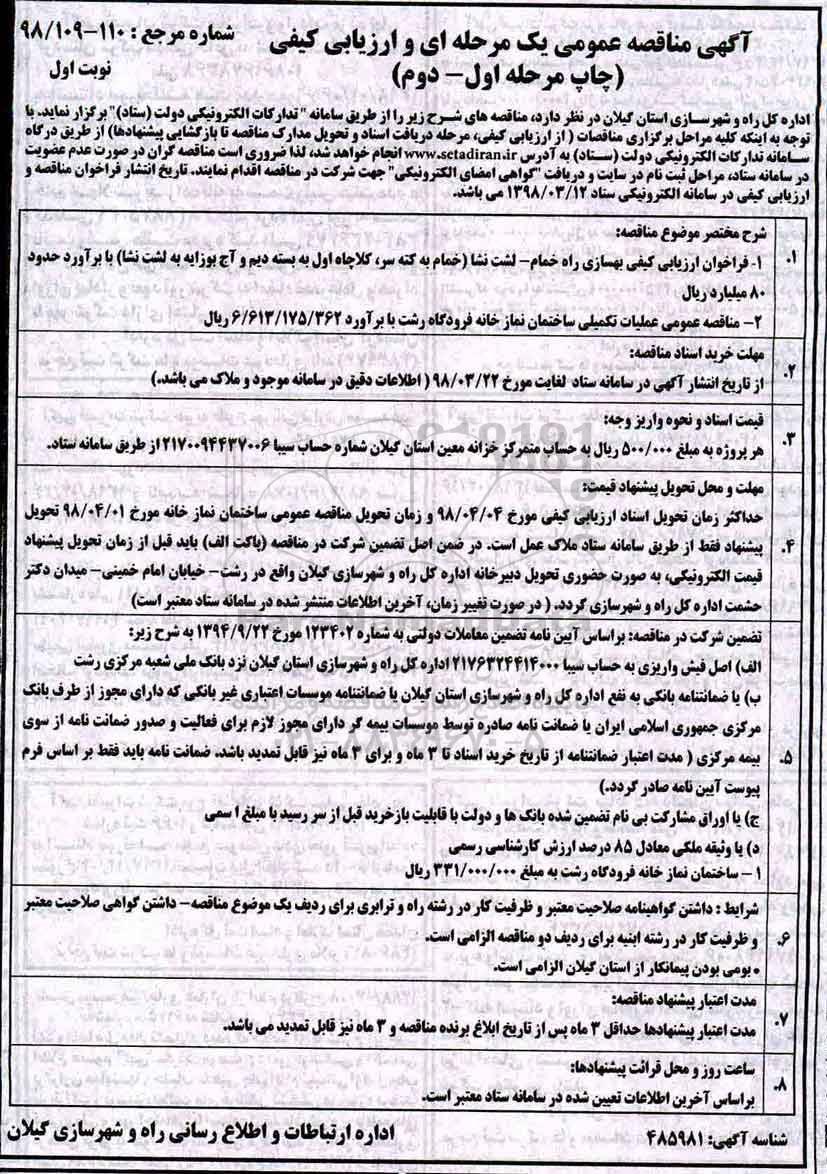 آگهی مناقصه عمومی یک مرحله ای و ارزیابی کیفی
(چاپ مرحله اول- دوم)
شماره مرجع : ۱۱۰-۹۸/۱۰۹
نوبت اول
اداره کل راه و شهرسازی استان گیلان در نظر دارد، مناقصه های شرح زیر را از طریق سامانه "تدارکات الکترونیکی دولت (ستاد)" برگزار نماید. با
توجه به اینکه کلیه مراحل برگزاری مناقصات ( از ارزیابی کیفی، مرحله دریافت اسناد و تحویل مدارک مناقصه تا بازگشایی پیشنهادها) از طریق درگاه
سامانه تدارکات الکترونیکی دولت (ستاد) به آدرس www.setadiran.ir انجام خواهد شد، لذا ضروری است مناقصه گران در صورت عدم عضویت
در سامانه ستاد، مراحل ثبت نام در سایت و دریافت "گواهی امضای الکترونیکی" جهت شرکت در مناقصه اقدام نمایند. تاریخ انتشار فراخوان مناقصه و
ارزیابی کیفی در سامانه الکترونیکی ستاد ۱۳۹۸/۰۳/۱۲ می باشد.
۱. شرح مختصر موضوع مناقصه:
۱- فراخوان ارزیابی کیفی بهسازی راه خمام- لشت نشا (خمام به کته سر، کلاچاه اول به بسته دیم و آج بوزایه به لشت نشا) با برآورد حدود
۸۰ میلیارد ریال
۲- مناقصه عمومی عملیات تکمیلی ساختمان نماز خانه فرودگاه رشت با برآورد ۶/۶۱۳/۱۷۵/۳۶۲ ریال
۲. مهلت خرید اسناد مناقصه:
از تاریخ انتشار آگهی در سامانه ستاد لغایت مورخ ۹۸/۰۳/۲۲ ( اطلاعات دقیق در سامانه موجود و ملاک می باشد.)
۳. قیمت اسناد و نحوه واریز وجه:
هر پروژه به مبلغ ۵۰۰/۰۰۰ ریال به حساب متمرکز خزانه معین استان گیلان شماره حساب سیبا ۲۱۷۰۰۹۴۴۳۷۰۰۶ از طریق سامانه ستاد.
۴. مهلت و محل تحویل پیشنهاد قیمت:
حداکثر زمان تحویل اسناد ارزیابی کیفی مورخ ۹۸/۰۴/۰۴ و زمان تحویل مناقصه عمومی ساختمان نماز خانه مورخ ۹۸/۰۴/۰۱ تحویل
پیشنهاد فقط از طریق سامانه ستاد ملاک عمل است. در ضمن اصل تضمین شرکت در مناقصه (پاکت الف) باید قبل از زمان تحویل پیشنهاد
قیمت الکترونیکی، به صورت حضوری تحویل دبیرخانه اداره کل راه و شهرسازی گیلان واقع در رشت- خیابان امام خمینی- میدان دکتر
حشمت اداره کل راه و شهرسازی گردد. ( در صورت تغییر زمان، آخرین اطلاعات منتشر شده در سامانه ستاد معتبر است)
۵. تضمین شرکت در مناقصه: براساس آیین نامه تضمین معاملات دولتی به شماره ۱۲۳۴۰۲ مورخ ۱۳۹۴/۹/۲۲ به شرح زیر:
الف) اصل فیش واریزی به حساب سیبا ۲۱۷۶۳۲۴۴۱۴۰۰۰ اداره کل راه و شهرسازی استان گیلان نزد بانک ملی شعبه مرکزی رشت
ب) یا ضمانتنامه بانکی به نفع اداره کل راه و شهرسازی استان گیلان یا ضمانتنامه موسسات اعتباری غیر بانکی که دارای مجوز از طرف بانک
مرکزی جمهوری اسلامی ایران یا ضمانت نامه صادره توسط موسسات بیمه گر دارای مجوز لازم برای فعالیت و صدور ضمانت نامه از سوی
بیمه مرکزی ( مدت اعتبار ضمانتنامه از تاریخ خرید اسناد تا ۳ ماه و برای ۳ ماه نیز قابل تمدید باشد. ضمانت نامه باید فقط بر اساس فرم
پیوست آیین نامه صادر گردد.)
ج) یا اوراق مشارکت بی نام تضمین شده بانک ها و دولت با قابلیت بازخرید قبل از سر رسید با مبلغ اسمی
د) یا وثیقه ملکی معادل ۸۵ درصد ارزش کارشناسی رسمی
۱- ساختمان نماز خانه فرودگاه رشت به مبلغ ۳۳۱/۰۰۰/۰۰۰ ریال
۶. شرایط : داشتن گواهینامه صلاحیت معتبر و ظرفیت کار در رشته راه و ترابری برای ردیف یک موضوع مناقصه- داشتن گواهی صلاحیت معتبر
و ظرفیت کار در رشته ابنیه برای ردیف دو مناقصه الزامی است.
• بومی بودن پیمانکار از استان گیلان الزامی است.
۷. مدت اعتبار پیشنهاد مناقصه:
مدت اعتبار پیشنهادها حداقل ۳ ماه پس از تاریخ ابلاغ برنده مناقصه و ۳ ماه نیز قابل تمدید می باشد.
۸. ساعت روز و محل قرائت پیشنهادها:
براساس آخرین اطلاعات تعیین شده در سامانه ستاد معتبر است.
شناسه آگهی: ۴۸۵۹۸۱
اداره ارتباطات و اطلاع رسانی راه و شهرسازی گیلان